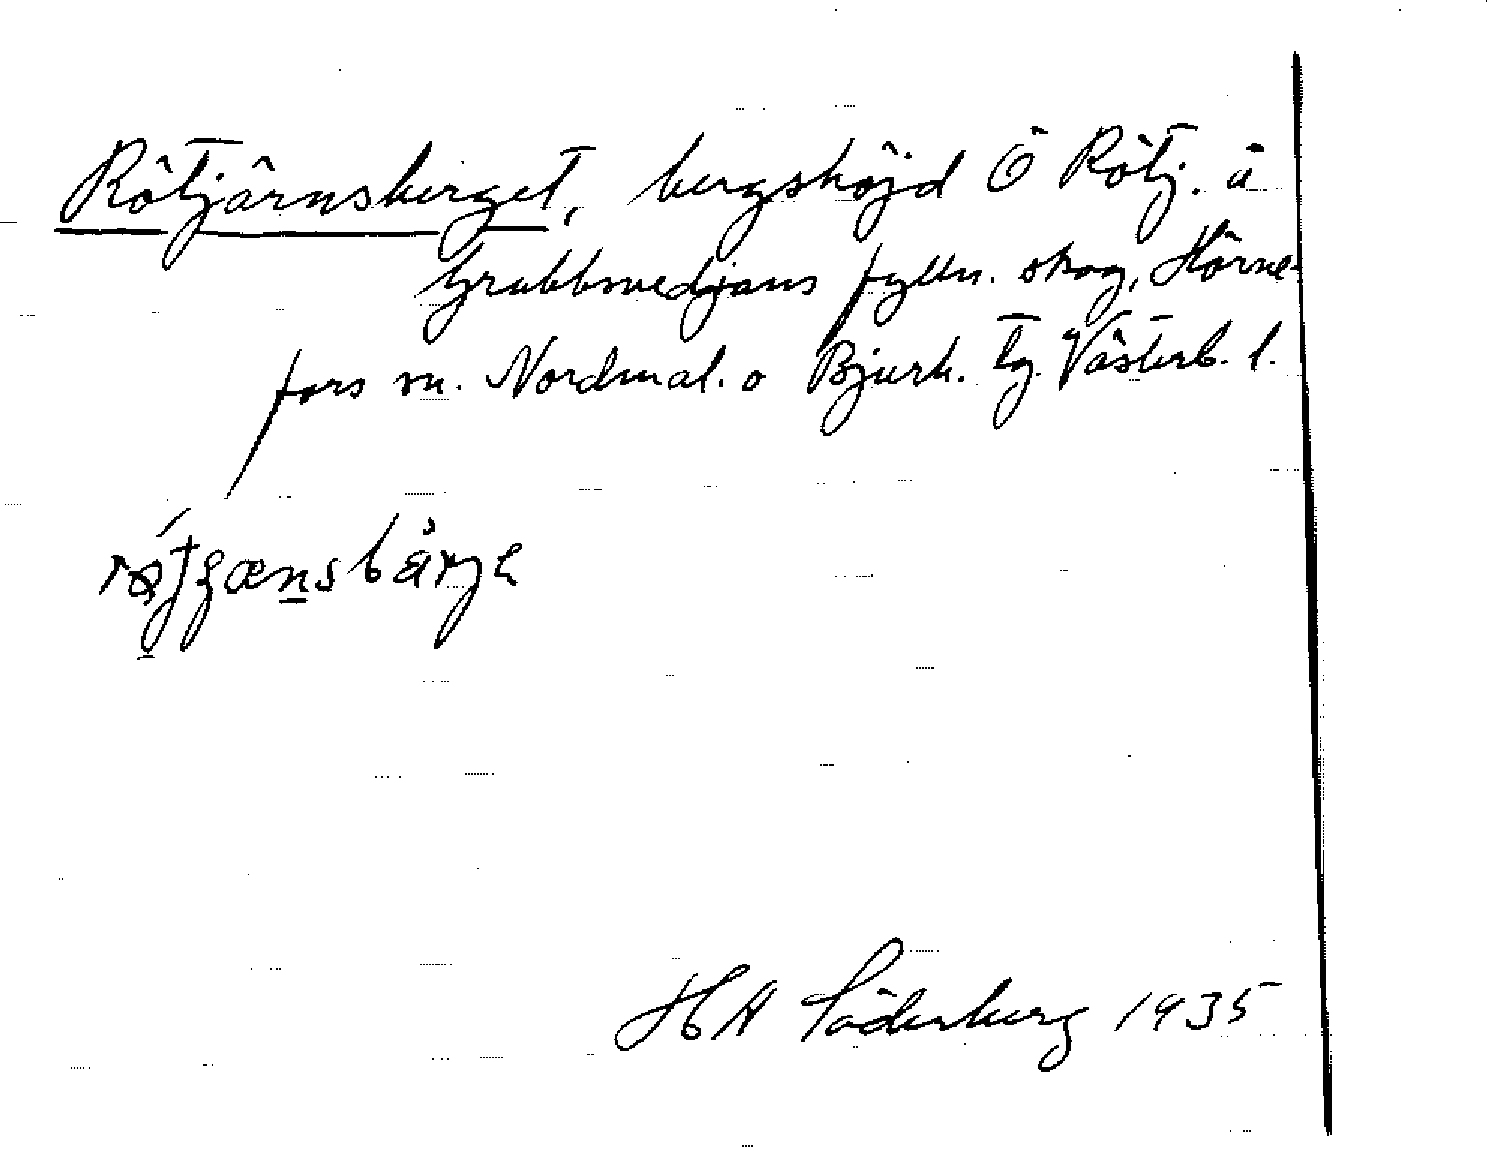 Rötjärnsberget, bergshöjd Ö Rötj. å
Grubbsmedjans fylln. skog, Hörne-
fors sn. Nordmal. o Bjurh. tg. Västerb. l.
HA Söderberg 1935